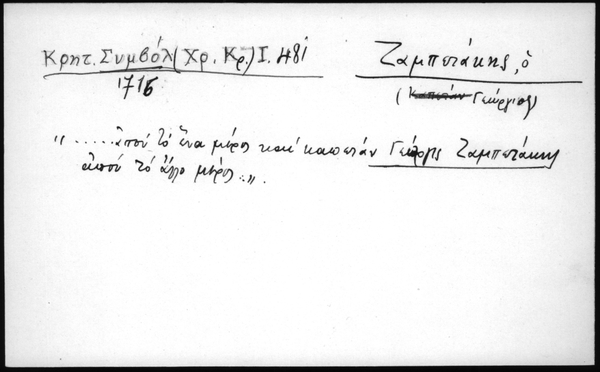 Κρητ. Συμβόλ (Χρ. Κρ.) I. 481
1716
Ζαμπετάκης, ὁ
(Καπετάν Γεώργιος)
"......ἀπού τό ἕνα μέρος καί καπετάν Γεώργις Ζαμπετάκης
ἀπού τό ἄλλο μέρος..".